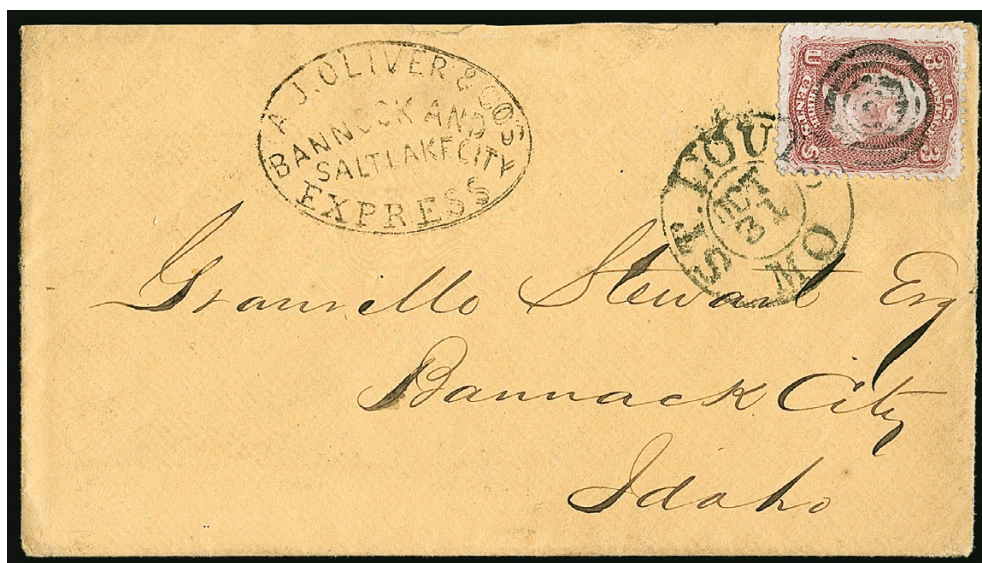 A. J. OLIVER & CO'S
BANNOCK AND
SALT LAKE CITY
EXPRESS
ST. LOUIS
OCT
31
MO
U. S.
3 3
Granville Stewart Esq
Bannack City
Idaho